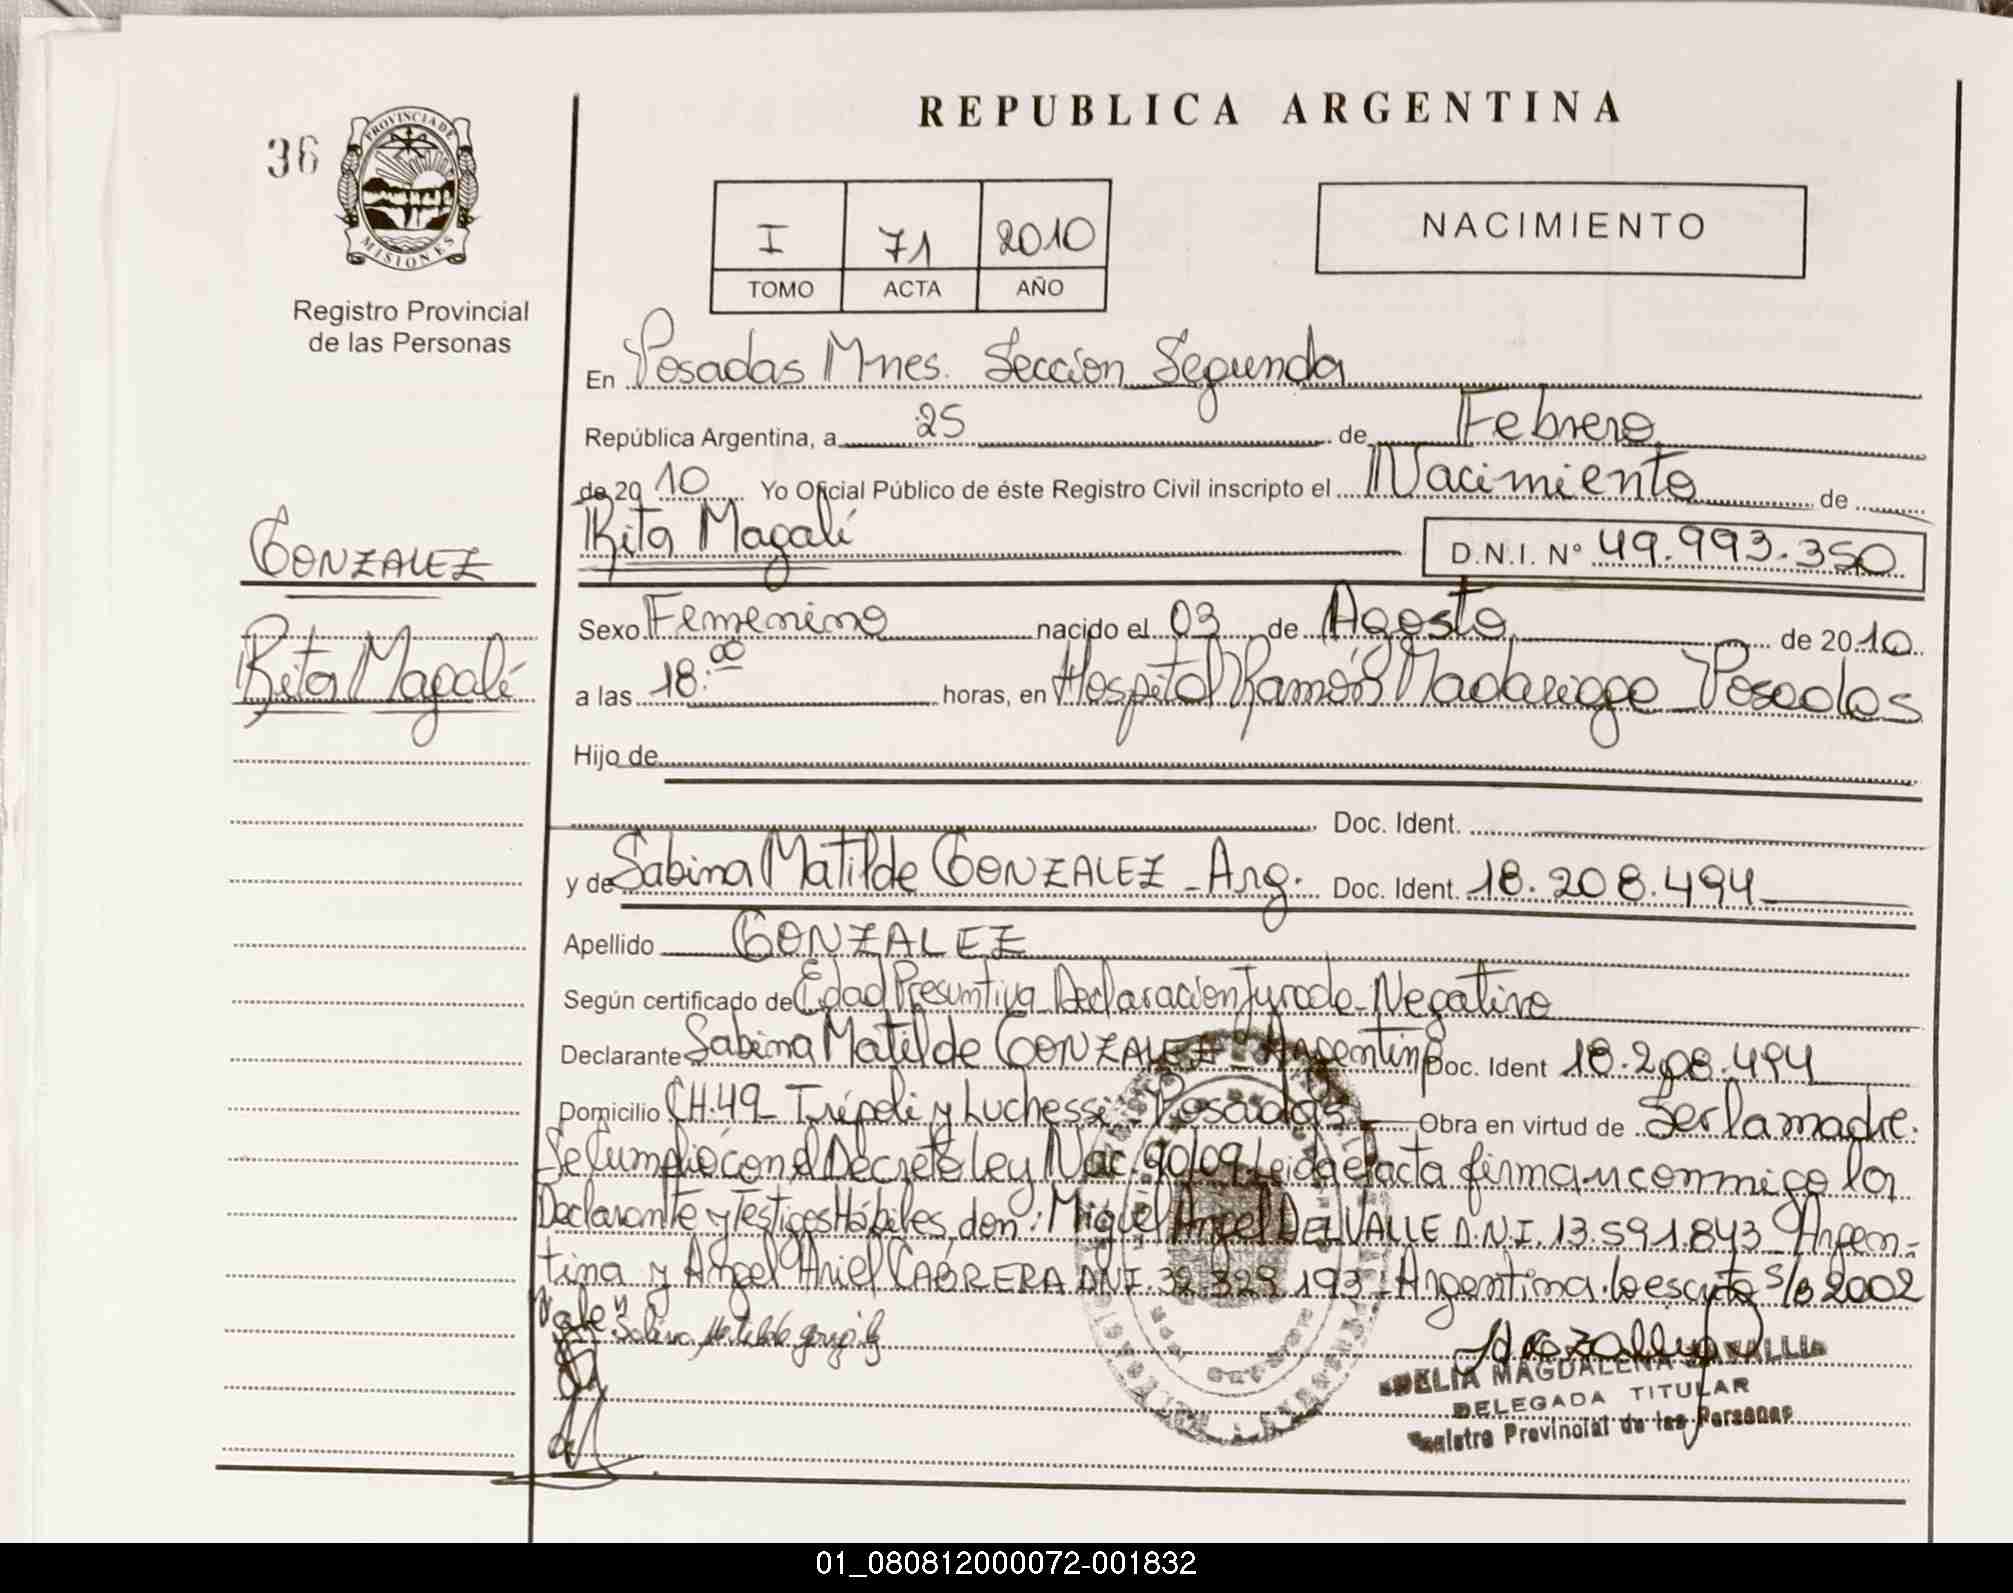 REPUBLICA ARGENTINA
36
PROVINCIA DE
MISIONES
Registro Provincial
de las Personas
I 71 2010
TOMO ACTA AÑO
NACIMIENTO
En Posadas Mnes. Sección Segunda
República Argentina, a 25 de Febrero
de 20 10 Yo Oficial Público de éste Registro Civil inscripto el Nacimiento de
Rita Magalí D.N.I. Nº 49.993.350
GONZALEZ
Rita Magalí
Sexo Femenino nacido el 03 de Agosto de 20 10
a las 18:00 horas, en Hospital Ramón Madariaga Posadas
Hijo de
Doc. Ident.
y de Sabina Matilde GONZALEZ - Arg. Doc. Ident. 18.208.494
Apellido GONZALEZ
Según certificado de Edad Presuntiva - Declaración Jurada - Negativo
Declarante Sabina Matilde GONZALEZ - Argentina Doc. Ident 18.208.494
Domicilio CH.49 - Trípoli y Luchessi - Posadas Obra en virtud de Ser la madre.
Se Cumplió con el Decreto Ley Nac. 90/09. Leida el acta firman conmigo la
Declarante y Testigos Hábiles, don: Miguel Angel DEL VALLE D.N.I. 13.591.843 - Argen-
tina y Angel Ariel CABRERA DNI. 32.329.193 - Argentina. lo escrito s/b 2002
Vale
Sabina Matilde gonzalez
MAGDALENA
DELEGADA TITULAR
Registro Provincial de las Personas
01_080812000072-001832